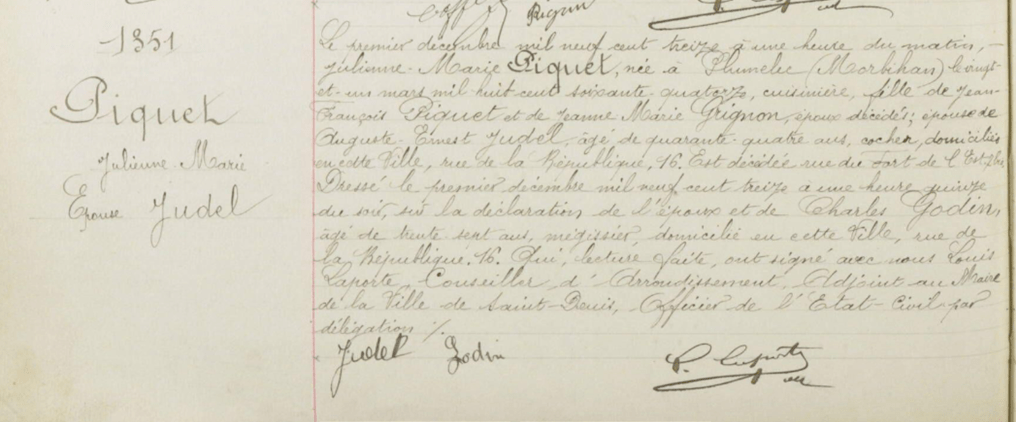 1351
Piquet
Julienne-Marie
Epouse Judel
Le premier décembre mil neuf cent treize à une heure du matin, -
Julienne-Marie Piquet, née à Plumelec (Morbihan) le vingt-
et-un mars mil huit cent soixante-quatorze, cuisinière, fille de Jean-
François Piquet et de Jeanne Marie Grignon, époux décédés; épouse de
Auguste-Ernest Judel, âgé de quarante-quatre ans, cocher, domiciliés
en cette Ville, rue de la République, 16. Est décédée rue du Fort de l'Est,
Dressé le premier décembre mil neuf cent treize à une heure quinze
du soir, sur la déclaration de l'époux et de Charles Godin,
âgé de trente sept ans, mégissier, domicilié en cette Ville, rue de
la République, 16. Qui, lecture faite, ont signé avec nous Louis
Laporte, Conseiller d'Arrondissement, Adjoint au Maire
de la Ville de Saint-Denis, Officier de l'Etat-Civil par
délégation ./.
Judel Godin
L. Laporte